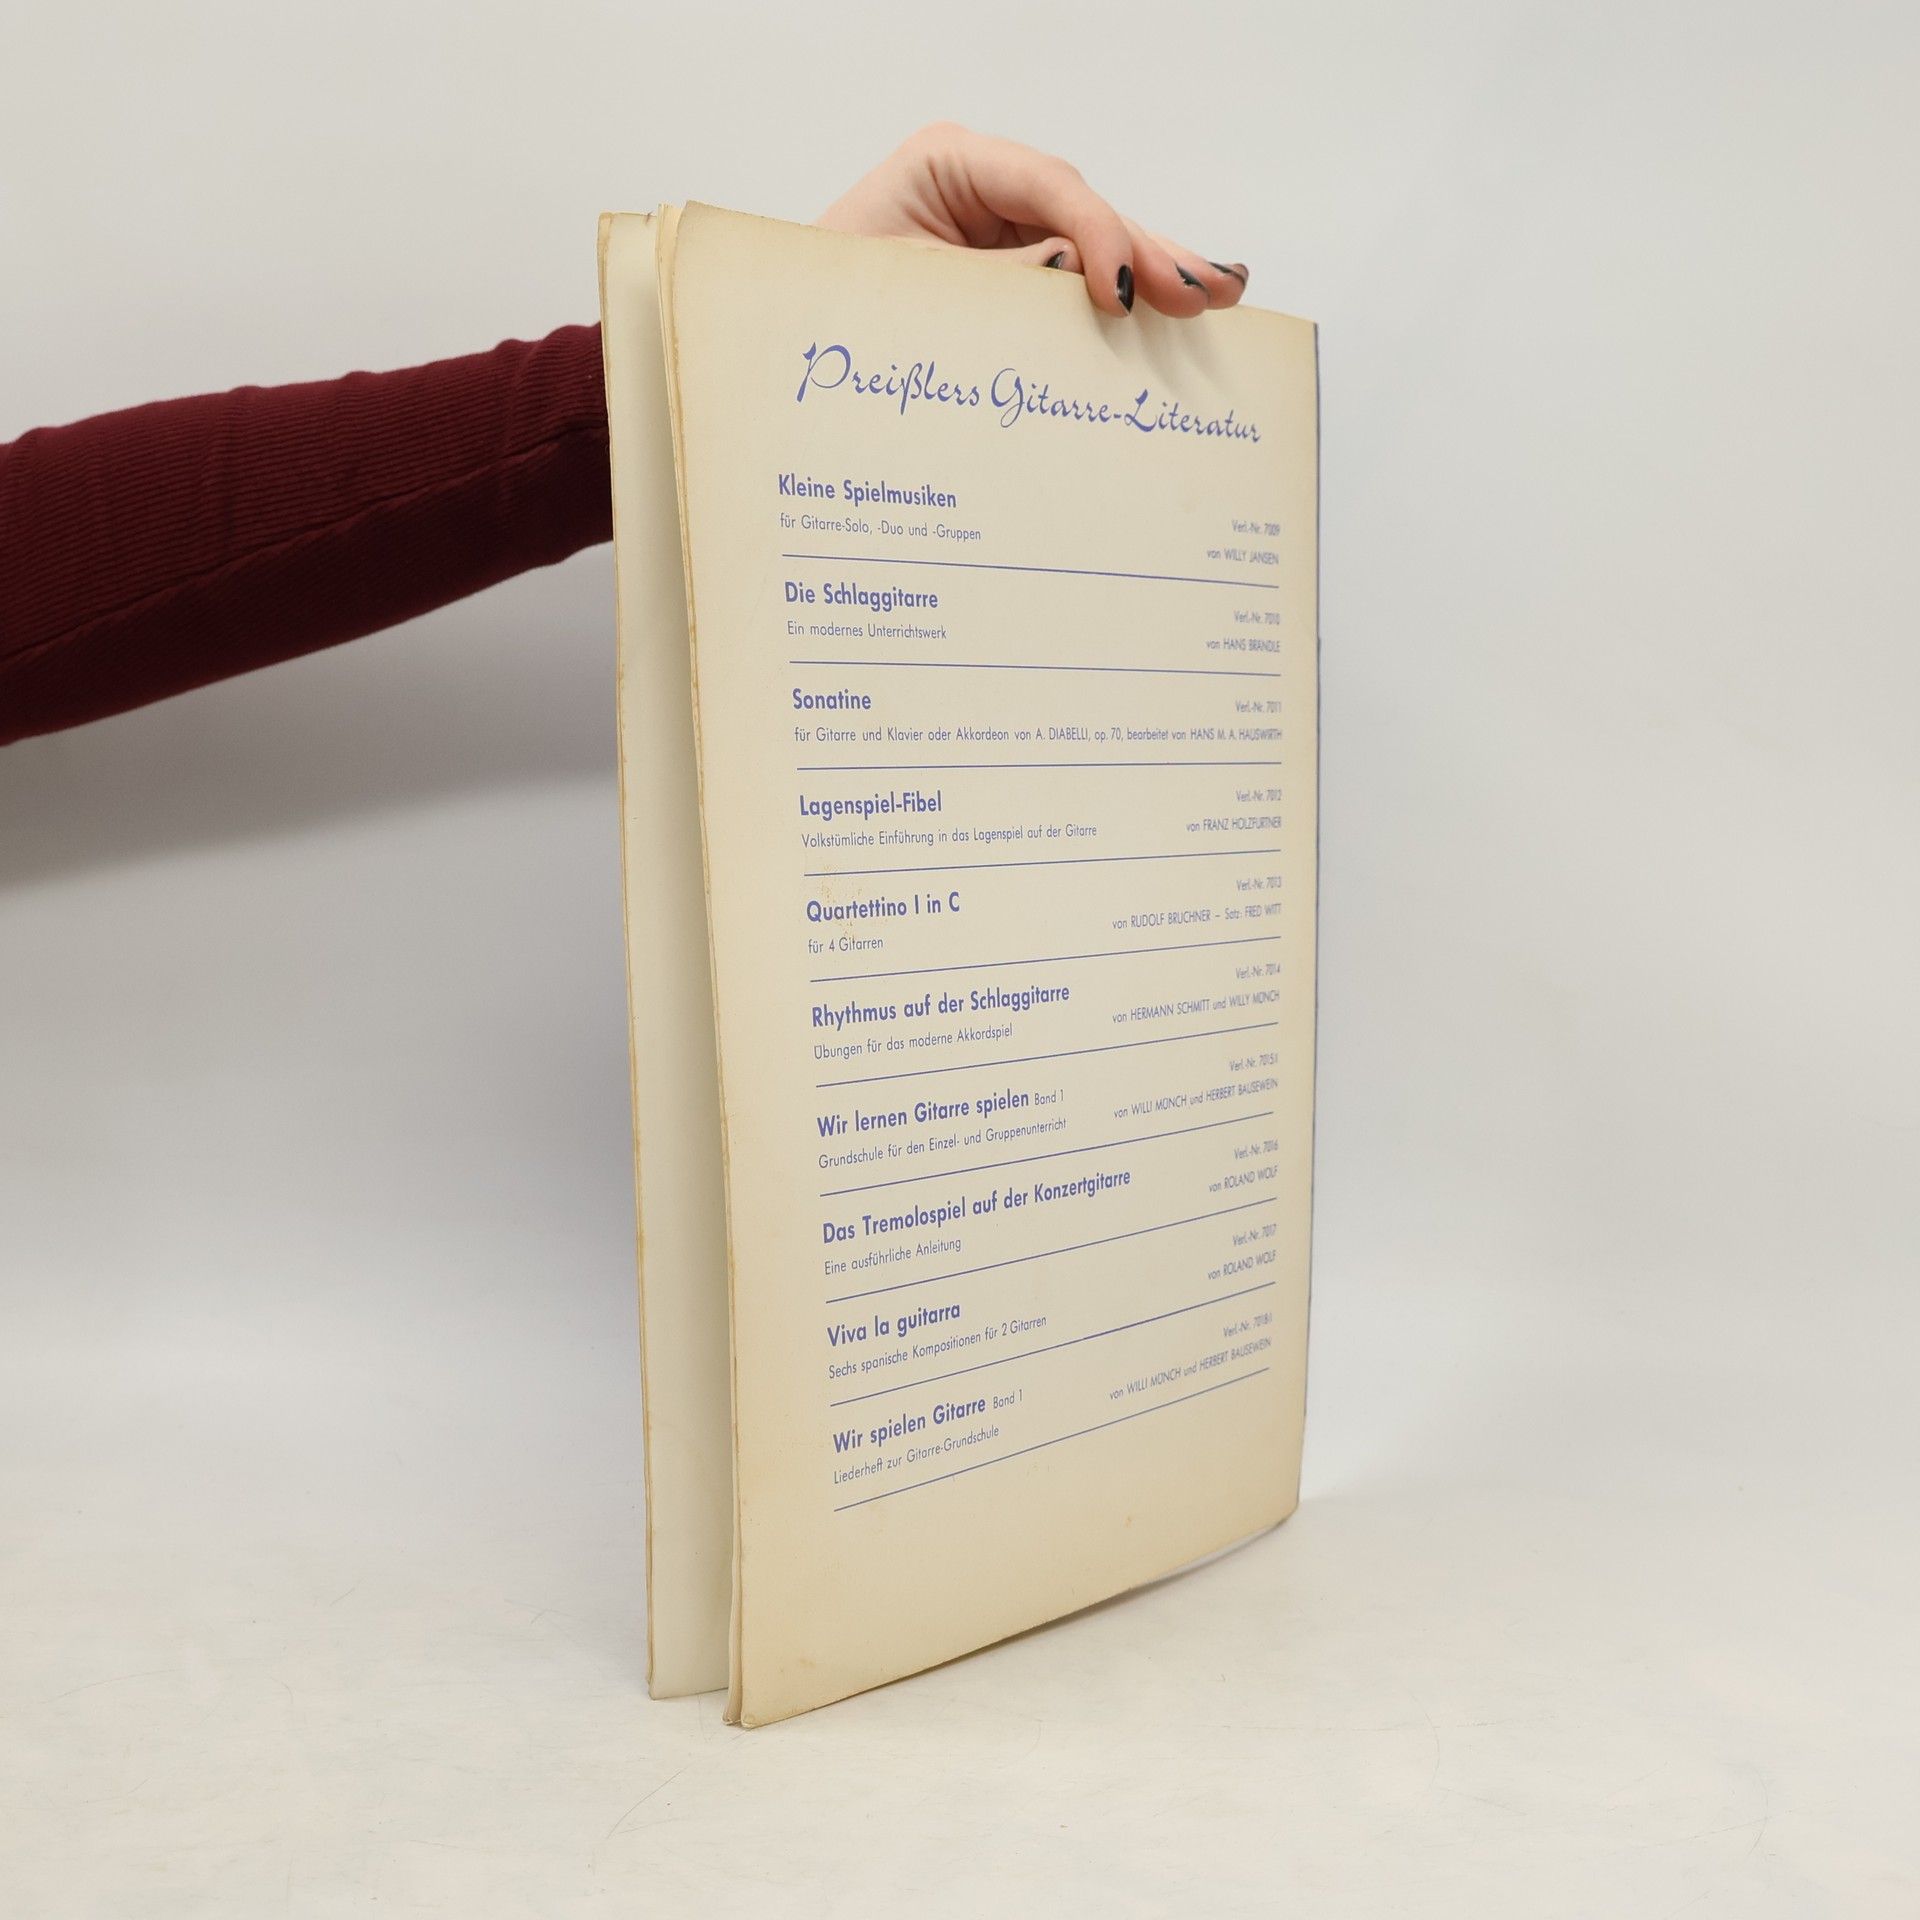 Preißlers Gitarre-Literatur
Kleine Spielmusiken
für Gitarre-Solo, -Duo und -Gruppen
Verl.-Nr. 7009
von WILLY JANSEN
Die Schlaggitarre
Ein modernes Unterrichtswerk
Verl.-Nr. 7010
von HANS BRÄNDLE
Sonatine
Verl.-Nr. 7011
für Gitarre und Klavier oder Akkordeon von A. DIABELLI, op. 70, bearbeitet von HANS M. A. HAUSWIRTH
Lagenspiel-Fibel
Verl.-Nr. 7012
Volkstümliche Einführung in das Lagenspiel auf der Gitarre
von FRANZ HOLZFURTNER
Quartettino I in C
Verl.-Nr. 7013
für 4 Gitarren
von RUDOLF BRUCHNER – Satz: FRED WITT
Rhythmus auf der Schlaggitarre
Verl.-Nr. 7014
Übungen für das moderne Akkordspiel
von HERMANN SCHMITT und WILLY MÜNCH
Wir lernen Gitarre spielen Band 1
Verl.-Nr. 7015/I
Grundschule für den Einzel- und Gruppenunterricht
von WILLI MÜNCH und HERBERT BAUSEWEIN
Das Tremolospiel auf der Konzertgitarre
Verl.-Nr. 7016
Eine ausführliche Anleitung
von ROLAND WOLF
Viva la guitarra
Verl.-Nr. 7017
Sechs spanische Kompositionen für 2 Gitarren
von ROLAND WOLF
Wir spielen Gitarre Band 1
Verl.-Nr. 7018/I
Liederheft zur Gitarre-Grundschule
von WILLI MÜNCH und HERBERT BAUSEWEIN